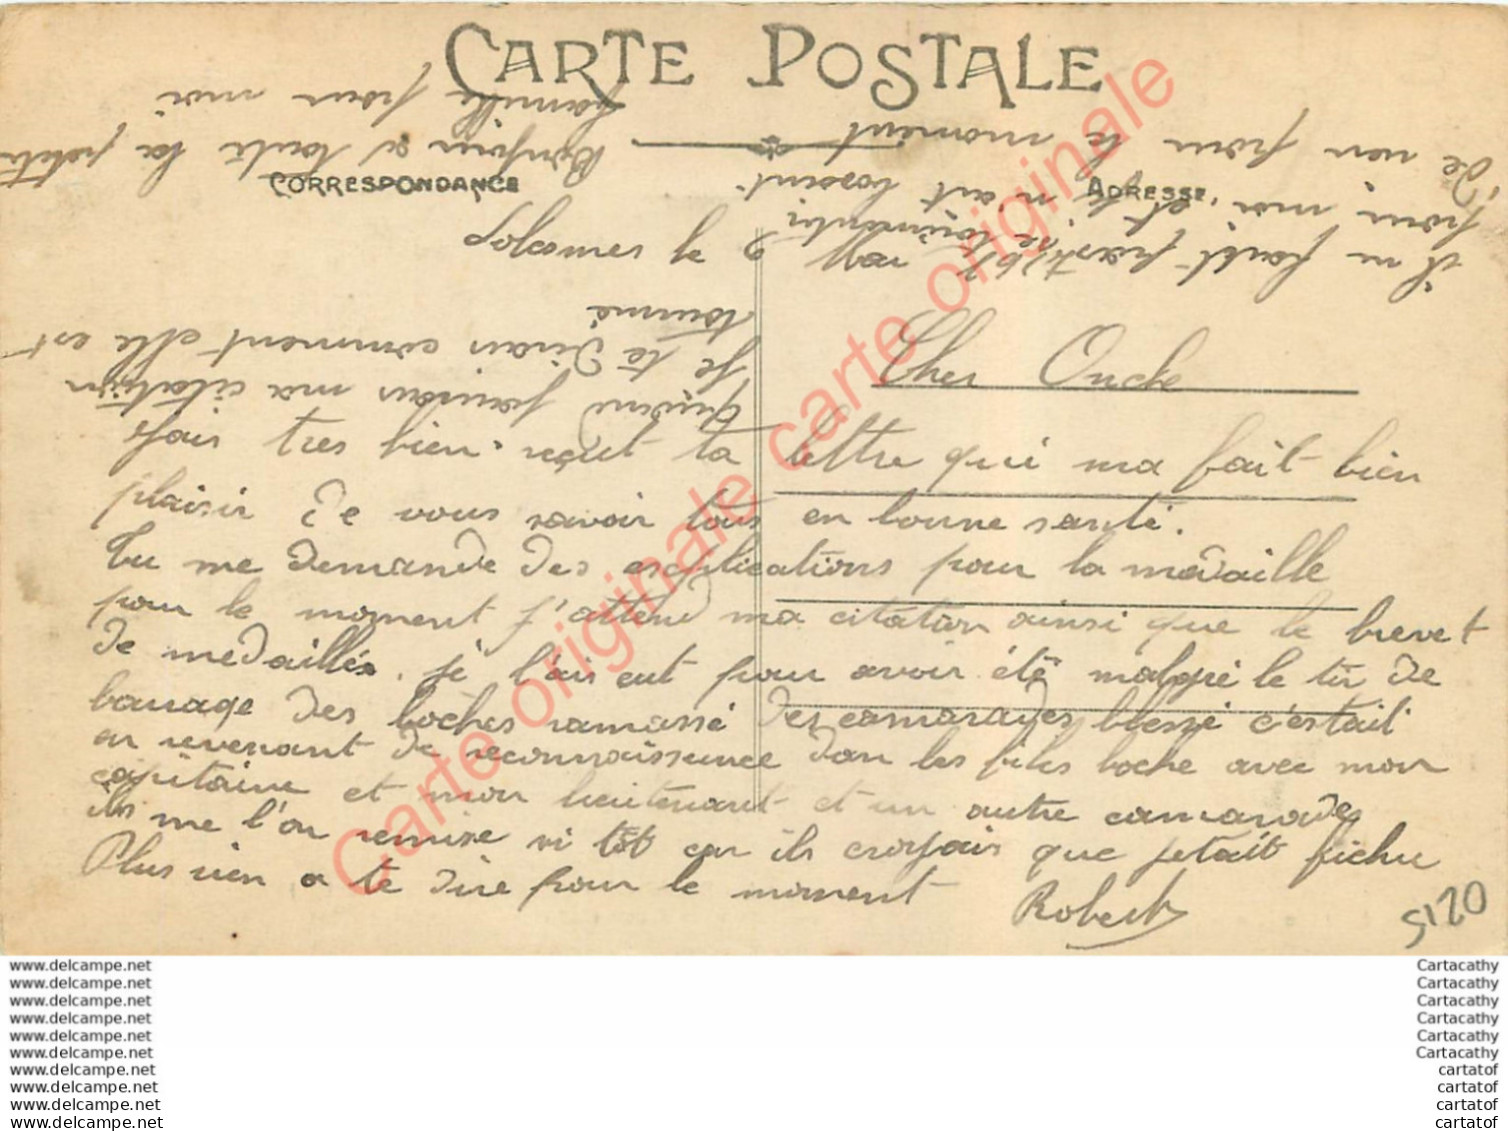 CARTE POSTALE
CORRESPONDANCE
ADRESSE
le 2 Mai
Cher Oncle
Jais tres bien reçut ta lettre qui ma fait bien
plaisir de vous savoir tous en bonne santé.
Tu me demande des explications pour la médaille
pour le moment j'attend ma citation ainsi que le brevet
de médaillés. je l'ais eut pour avoir été malgré le tir de
barrage des boches ramassé des camarades blessé c'était
en revenant de reconnaissance dan les files boche avec mon
capitaine et mon lieutenant et un autre camarades
ils me l'on remise si tôt car ils croyais que jetait fichu
Plus rien a te dire pour le moment
Robert
quand j'aurais ma citation
je te dirais comment elle est
tourné
il ne faut pas se tourmenter
pour moi, et je n'ait besoint
de rien pour le moment
Bonjour a toute la petite
famille pour moi
5120
Carte originale carte originale Carte originale carte originale
www.delcampe.net
www.delcampe.net
www.delcampe.net
www.delcampe.net
www.delcampe.net
www.delcampe.net
www.delcampe.net
www.delcampe.net
www.delcampe.net
www.delcampe.net
Cartacathy
Cartacathy
Cartacathy
Cartacathy
Cartacathy
Cartacathy
cartatof
cartatof
cartatof
cartatof